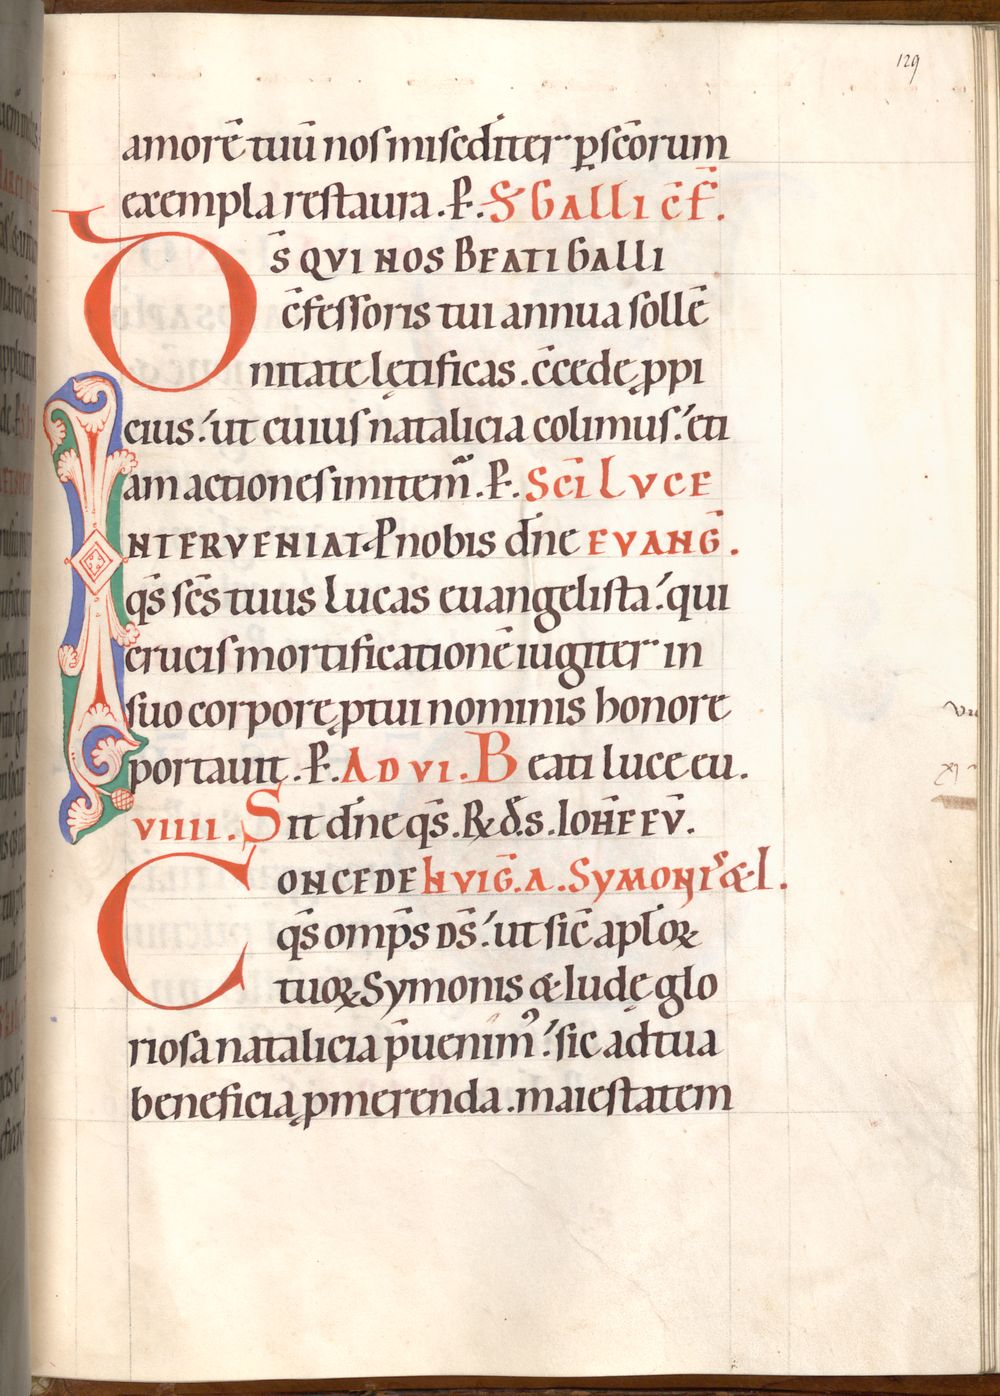 129
amorē tuū nos misedíter p̱ scōrum
exempla restaura. P̱. S GALLI c̄f̄.
Ds̄ QVI NOS BEATI GALLI
c̄fessoris tui annua sollē
nitate lętificas. c̄cede p̱pi
cius.' ut cuius natalicia colimus.' eti
am actiones imitem̄. P̱. Sc̄i LVCE
INTERVENIAT P nobis dn̄e EVANḠ.
qs̄ sc̄s tuus Lucas euangelista.' qui
crucis mortificationē iugiter in
suo corpore p̱ tui nominis honore
portauit. P̱. AD VI. Beati luce eu.
VIIII. Sit dn̄e qs̄. R& d̄.s. IOHE EV̄.
CONCEDE hVIḠ.A. SYMONIS & I.
qs̄ omp̄s DS̄.' ut sic̄ apl̄oꝝ
tuoꝝ Symonis & Iudę glo
riosa natalicia p̄uenimꝰ.' sic ad tua
beneficia p̱merenda. maiestatem